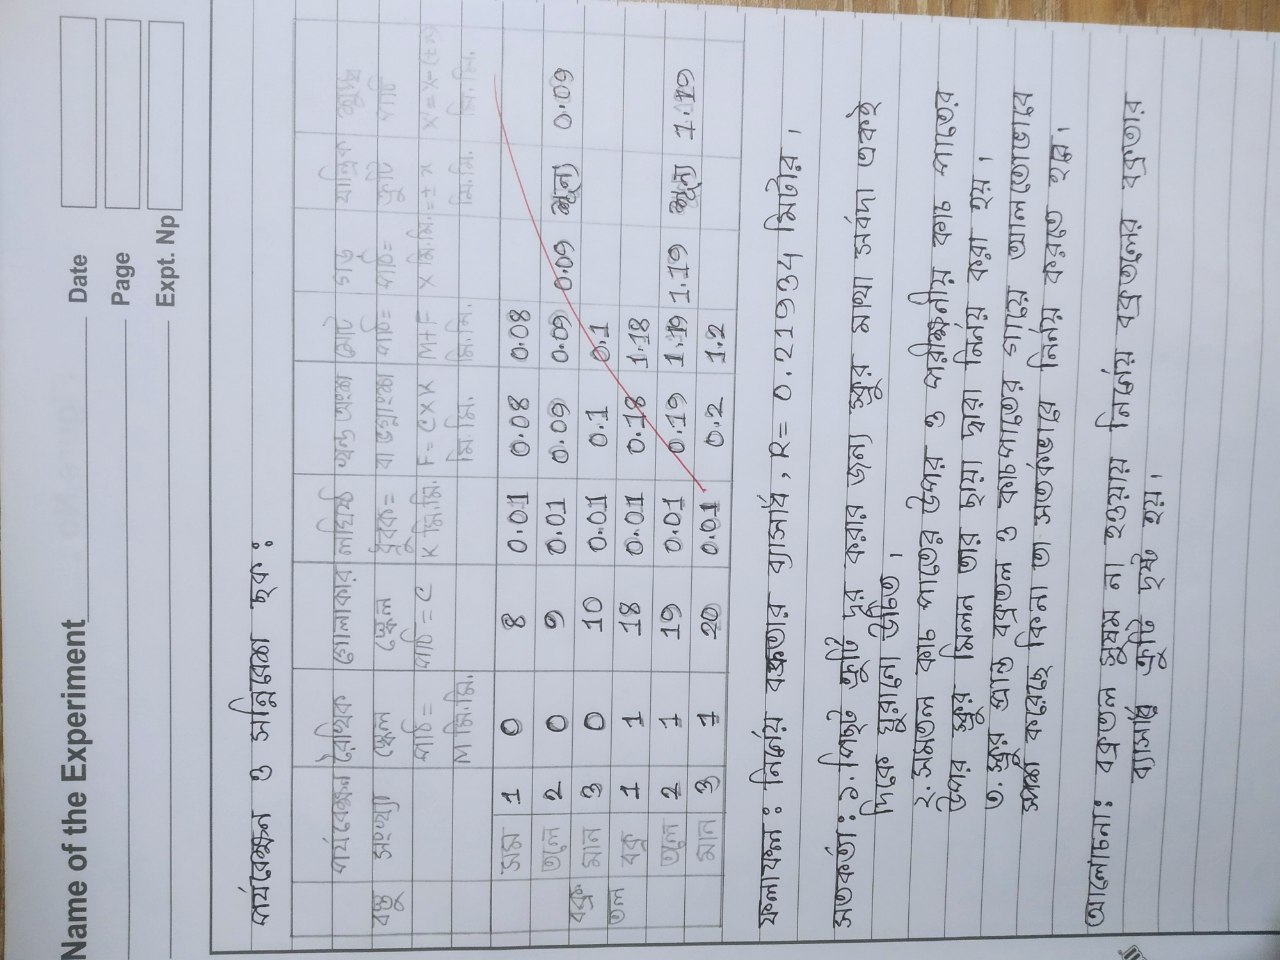 Name of the Experiment
Date
Page
Expt. Np
পর্যবেক্ষন ও সন্নিবেশ ছক :
বস্তু পর্যবেক্ষন সংখ্যা | রৈখিক স্কেল পাঠ = M মি.মি. | গোলাকার স্কেল পাঠ = C | লঘিষ্ঠ ধ্রুবক = K মি.মি. | খন্ড অংশ বা ভগ্নাংশ F = C×K মি.মি. | মোট পাঠ = M+F মি.মি. | গড় পাঠ = X মি.মি. | যান্ত্রিক ত্রুটি = ± x মি.মি. | শুদ্ধ পাঠ X' = X-(±x) মি.মি.
সম 1 0 8 0.01 0.08 0.08
তলে 2 0 9 0.01 0.09 0.09 0.09 শূন্য 0.09
মান 3 0 10 0.01 0.1 0.1
বক্র তল
বক্র 1 1 18 0.01 0.18 1.18
তলে 2 1 19 0.01 0.19 1.19 1.19 শূন্য 1.19
মান 3 1 20 0.01 0.2 1.2
ফলাফল : নির্ণেয় বক্রতার ব্যাসার্ধ, R = 0.21934 মিটার ।
সতর্কতা : ১. পিছট ত্রুটি দূর করার জন্য স্ক্রুর মাথা সর্বদা একই
দিকে ঘুরানো উচিত ।
২. সমতল কাচ পাতের উপর ও পরীক্ষনীয় কাচ পাতের
উপর স্ক্রুর মিলন তার ছায়া দ্বারা নির্ণয় করা হয় ।
৩. স্ক্রুর প্রান্ত বক্রতল ও কাচপাতের গায়ে আলতোভাবে
স্পর্শ করেছে কিনা তা সতর্কভাবে নির্ণয় করতে হবে ।
আলোচনা : বক্রতল সুষম না হওয়ায় নির্ণেয় বক্রতলের বক্রতার
ব্যাসার্ধে ত্রুটি দৃষ্ট হয় ।